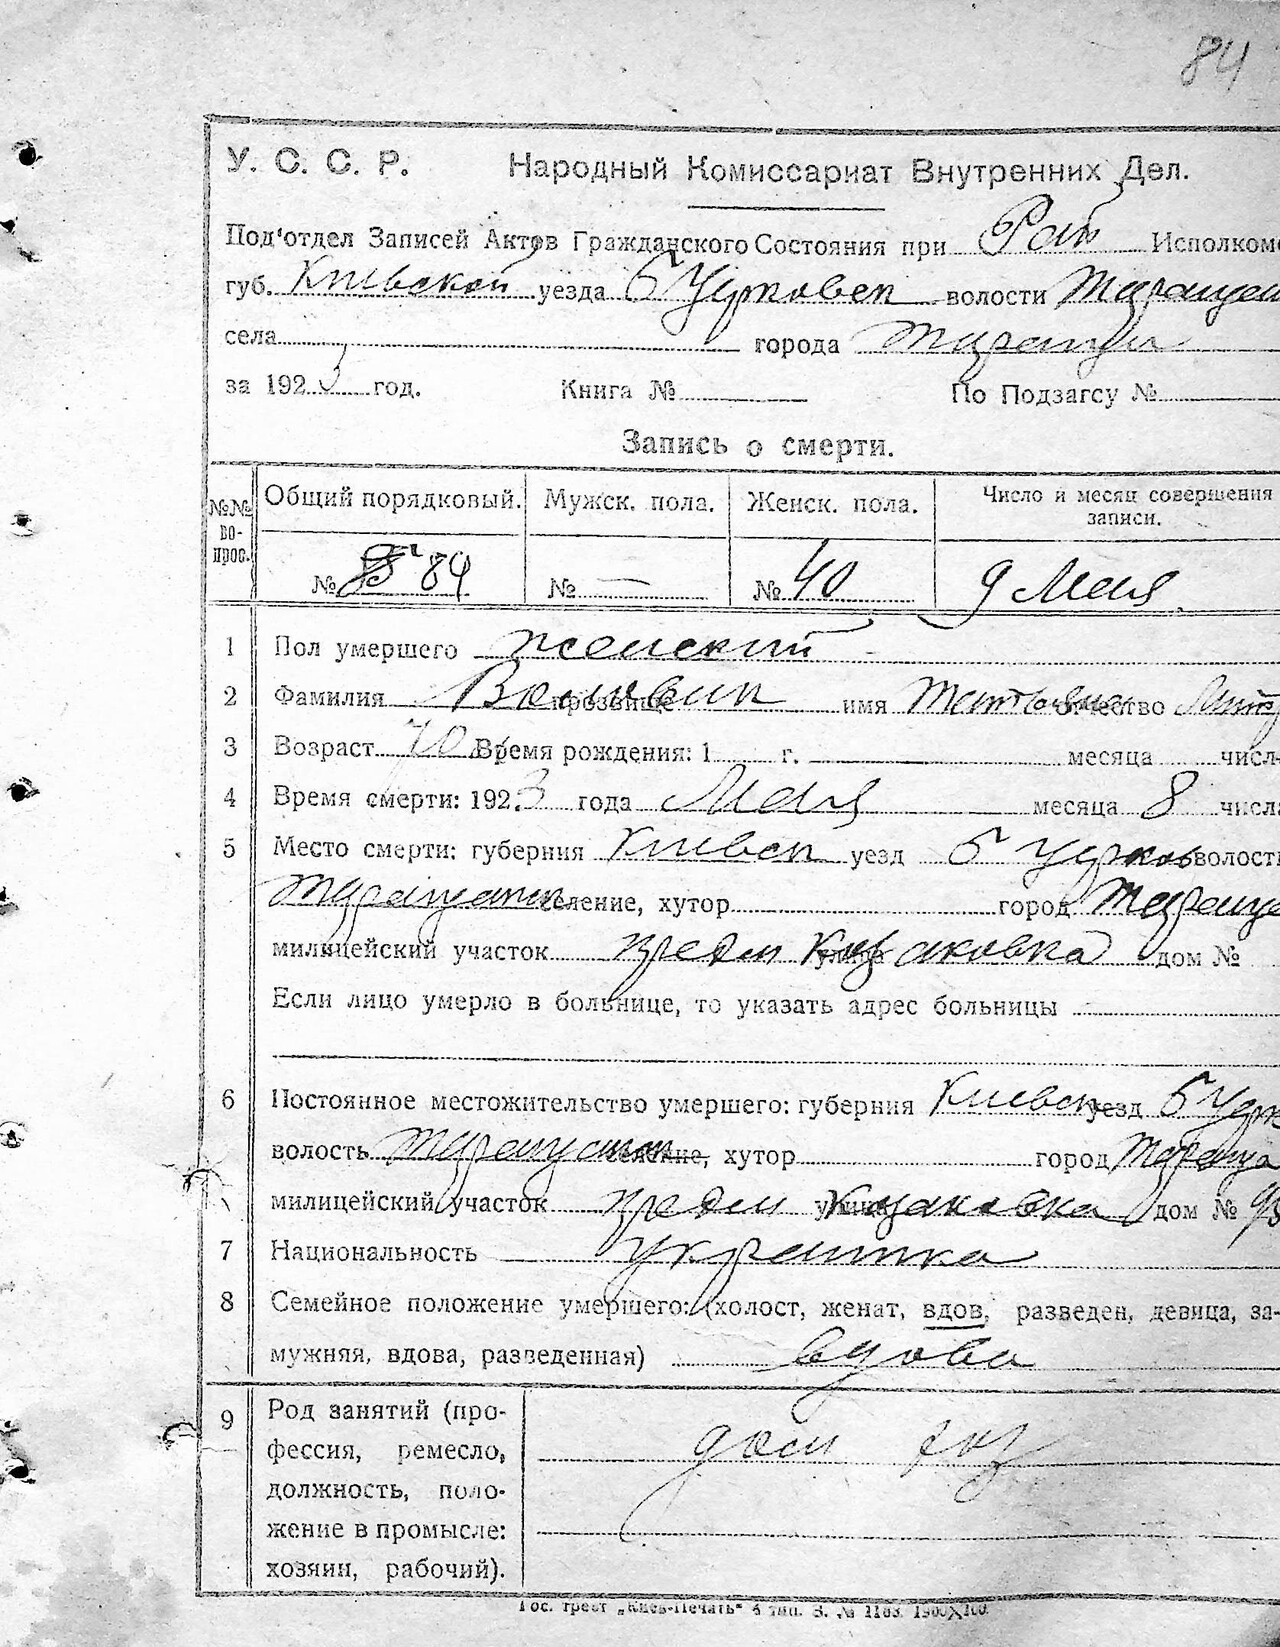 84
У. С. С. Р. Народный Комиссариат Внутренних Дел.
Под'отдел Записей Актов Гражданского Состояния при Рай Исполкоме
губ. Киевской уезда БЦерковск волости Таращан
села города Таращи
за 1923 год. Книга № По Подзагсу №
Запись о смерти.
№№ вопрос. Общий порядковый. Мужск. пола. Женск. пола. Число и месяц совершения
записи.
№ 84 № — № 40 9 Мая
1 Пол умершего женский
2 Фамилия прозвище имя Татьяна отчество
3 Возраст 70 Время рождения: 1 г. месяца числ
4 Время смерти: 1923 года Мая месяца 8 числа
5 Место смерти: губерния Киевск уезд Б Церков волость
Таращанск селение, хутор город Тараща
милицейский участок предм улица Казаковка дом №
Если лицо умерло в больнице, то указать адрес больницы
6 Постоянное местожительство умершего: губерния Киевск уезд Б Церк
волость Таращанск селение, хутор город Тараща
милицейский участок предм улица Казаковка дом №
7 Национальность украинка
8 Семейное положение умершего: (холост, женат, вдов, разведен, девица, за-
мужняя, вдова, разведенная) вдова
9 Род занятий (про-
фессия, ремесло,
должность, поло-
жение в промысле:
хозяин, рабочий).
дом хоз
Гос. трест „Киев-Печать" 6 тип. З. № 1163. 1900Х100